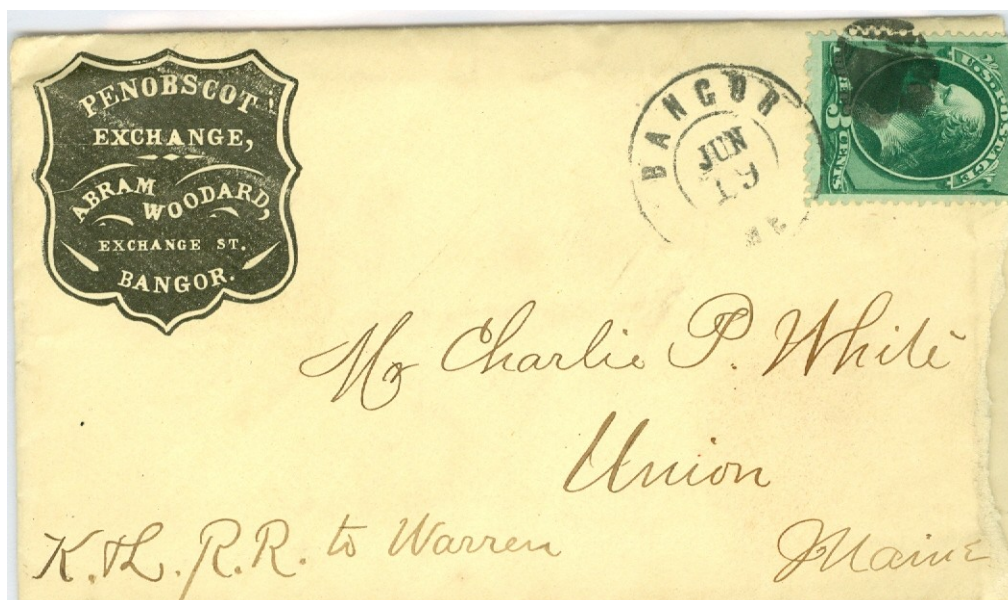 PENOBSCOT
EXCHANGE,
ABRAM
WOODARD,
EXCHANGE ST.
BANGOR.
BANGOR
JUN
19
ME
U.S. POSTAGE
THREE 3 CENTS
Mr Charlie P. White
Union
K. & L. R.R. to Warren
Maine